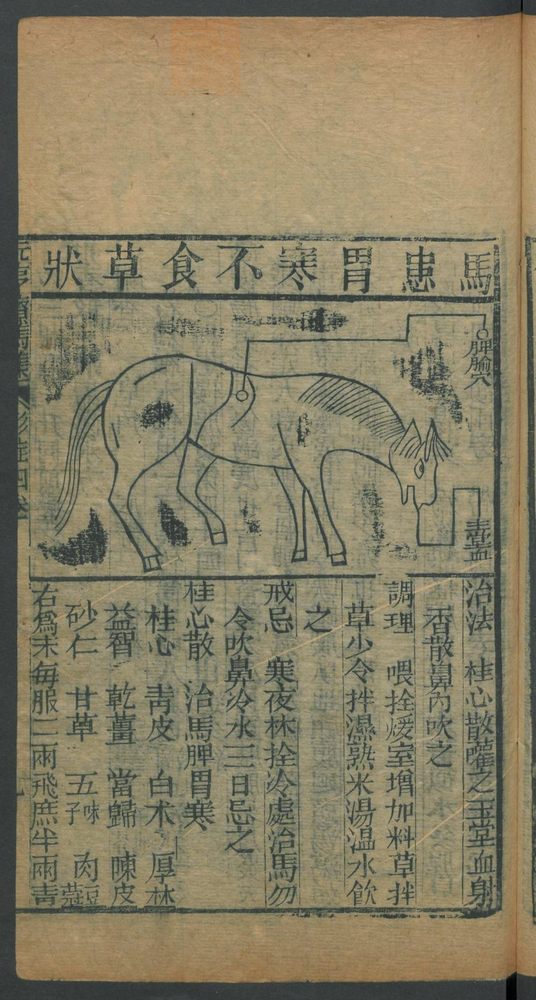 馬患胃寒不食草狀
脾腧穴
治法　桂心散嚾之玉堂血射
香散鼻內吹之
調理　喂拴煖室增加料草拌
草少令拌濕熟米湯溫水飲
之
戒忌　寒夜休拴冷處治馬勿
令吹鼻冷水三日忌之
桂心散　治馬脾胃寒
桂心　青皮　白朮　厚朴
益智　乾薑　當歸　陳皮
砂仁　甘草　五味子　肉荳蔻
右為末每服二兩飛鹽半兩青